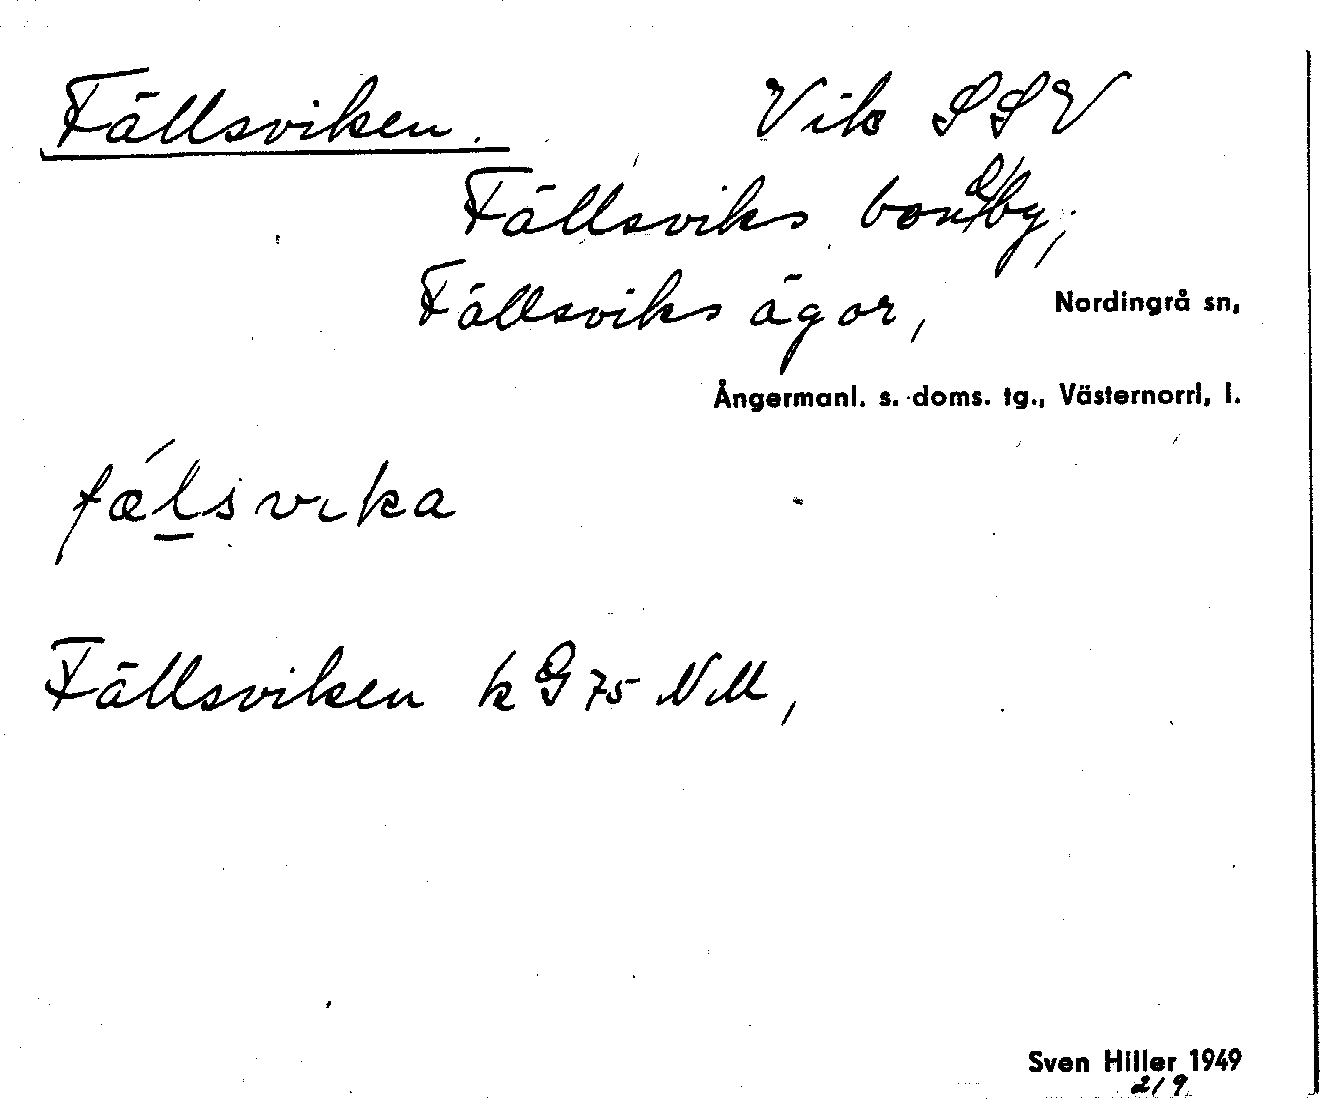 Fällsviken. Vik SSV
Fällsviks bondby,
Fällsviks ägor, Nordingrå sn,
Ångermanl. s. doms. tg., Västernorrl. l.
fæ´lsvıka
Fällsviken k G 75 NM,
Sven Hiller 1949
2/9